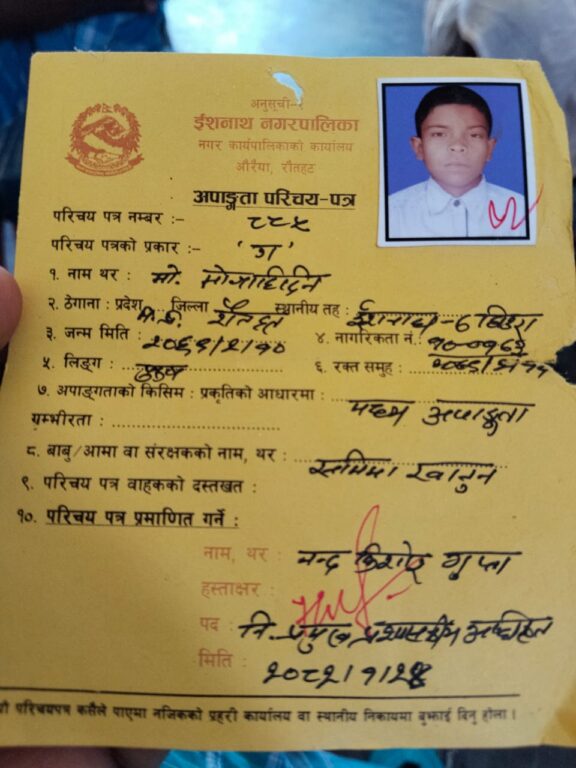 अनुसूची-१
ईशनाथ नगरपालिका
नगर कार्यपालिकाको कार्यालय
औरैया, रौतहट
अपाङ्गता परिचय-पत्र
परिचय पत्र नम्बर :- ८८५
परिचय पत्रको प्रकार :- 'ग'
१. नाम थर : मो.
२. ठेगाना : प्रदेश जिल्ला रौतहट स्थानीय तह : ईशनाथ-६
३. जन्म मिति : ४. नागरिकता नं.:
५. लिङ्ग : पुरुष ६. रक्त समुह :
७. अपाङ्गताको किसिम : प्रकृतिको आधारमा : मध्यम अपाङ्गता
गम्भीरता :
८. बाबु/आमा वा संरक्षकको नाम, थर : खातुन
९. परिचय पत्र वाहकको दस्तखत :
१०. परिचय पत्र प्रमाणित गर्ने :
नाम, थर : नन्द किशोर गुप्ता
हस्ताक्षर :
पद : नि. प्रमुख प्रशासकीय अधिकृत
मिति : २०८२/१/
यो परिचयपत्र कसैले पाएमा नजिकको प्रहरी कार्यालय वा स्थानीय निकायमा बुझाई दिनु होला ।